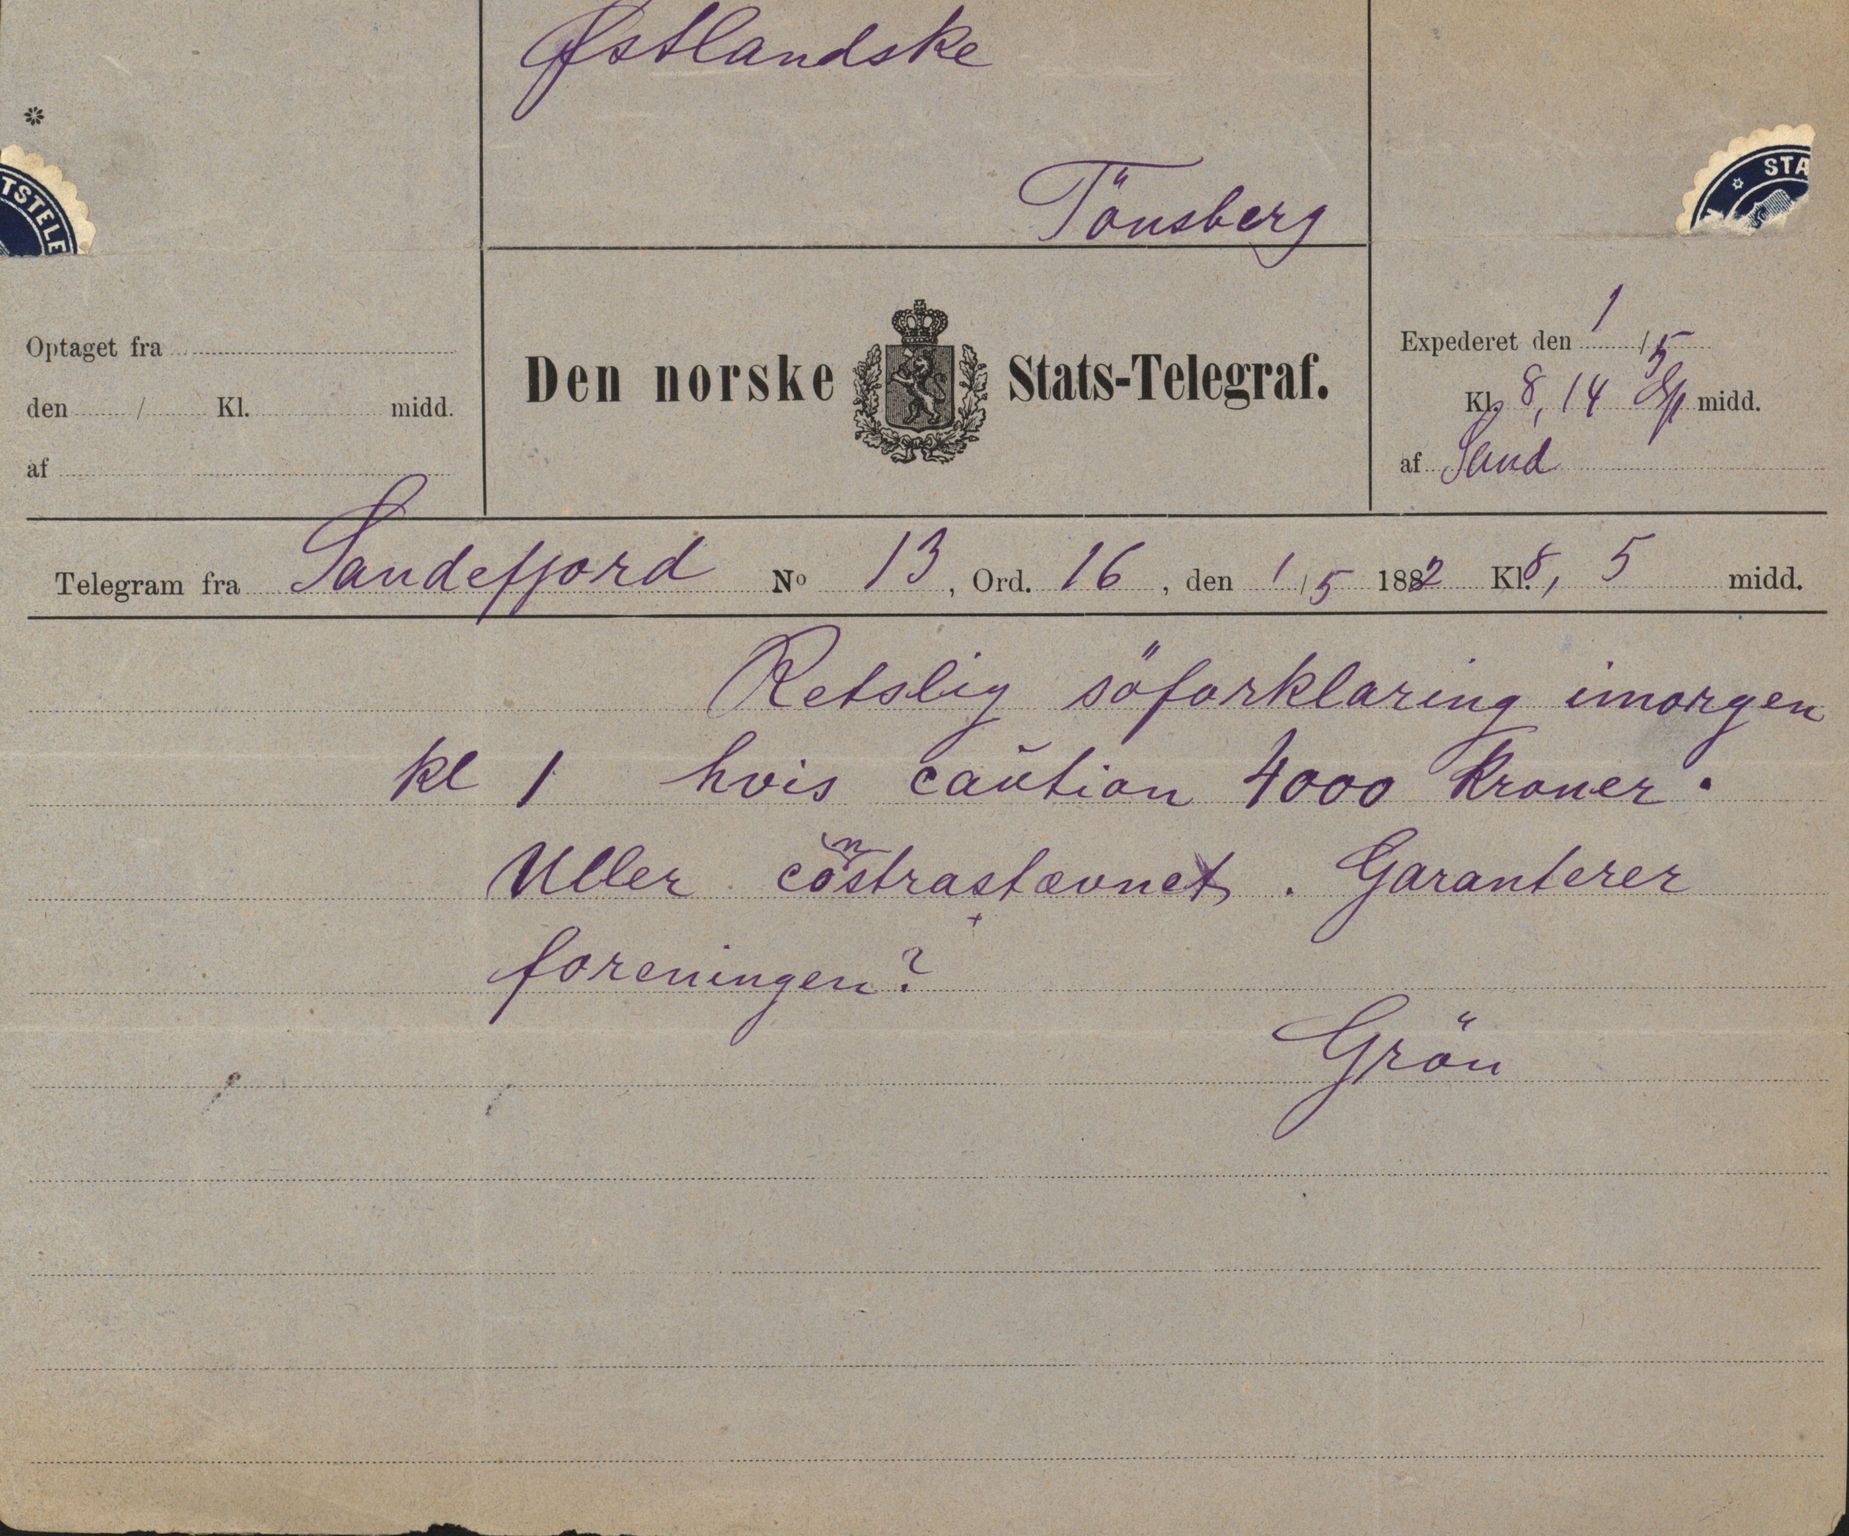 Østlandske
Tönsberg
TSTELE
STA
Optaget fra
den / Kl. midd.
af
Den norske Stats-Telegraf.
Expederet den 1/5
Kl. 8,14 midd.
af Sand
Telegram fra Sandefjord No 13, Ord. 16, den 1/5 1882 Kl. 8,5 midd.
Retslig söforklaring imorgen
kl 1 hvis caution 4000 kroner.
Uller constrastævnet. Garanterer
foreningen?
Grön